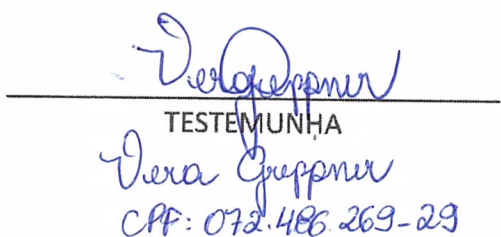 Veragreppner
TESTEMUNHA
Vera Greppner
CPF: 072.486.269-29